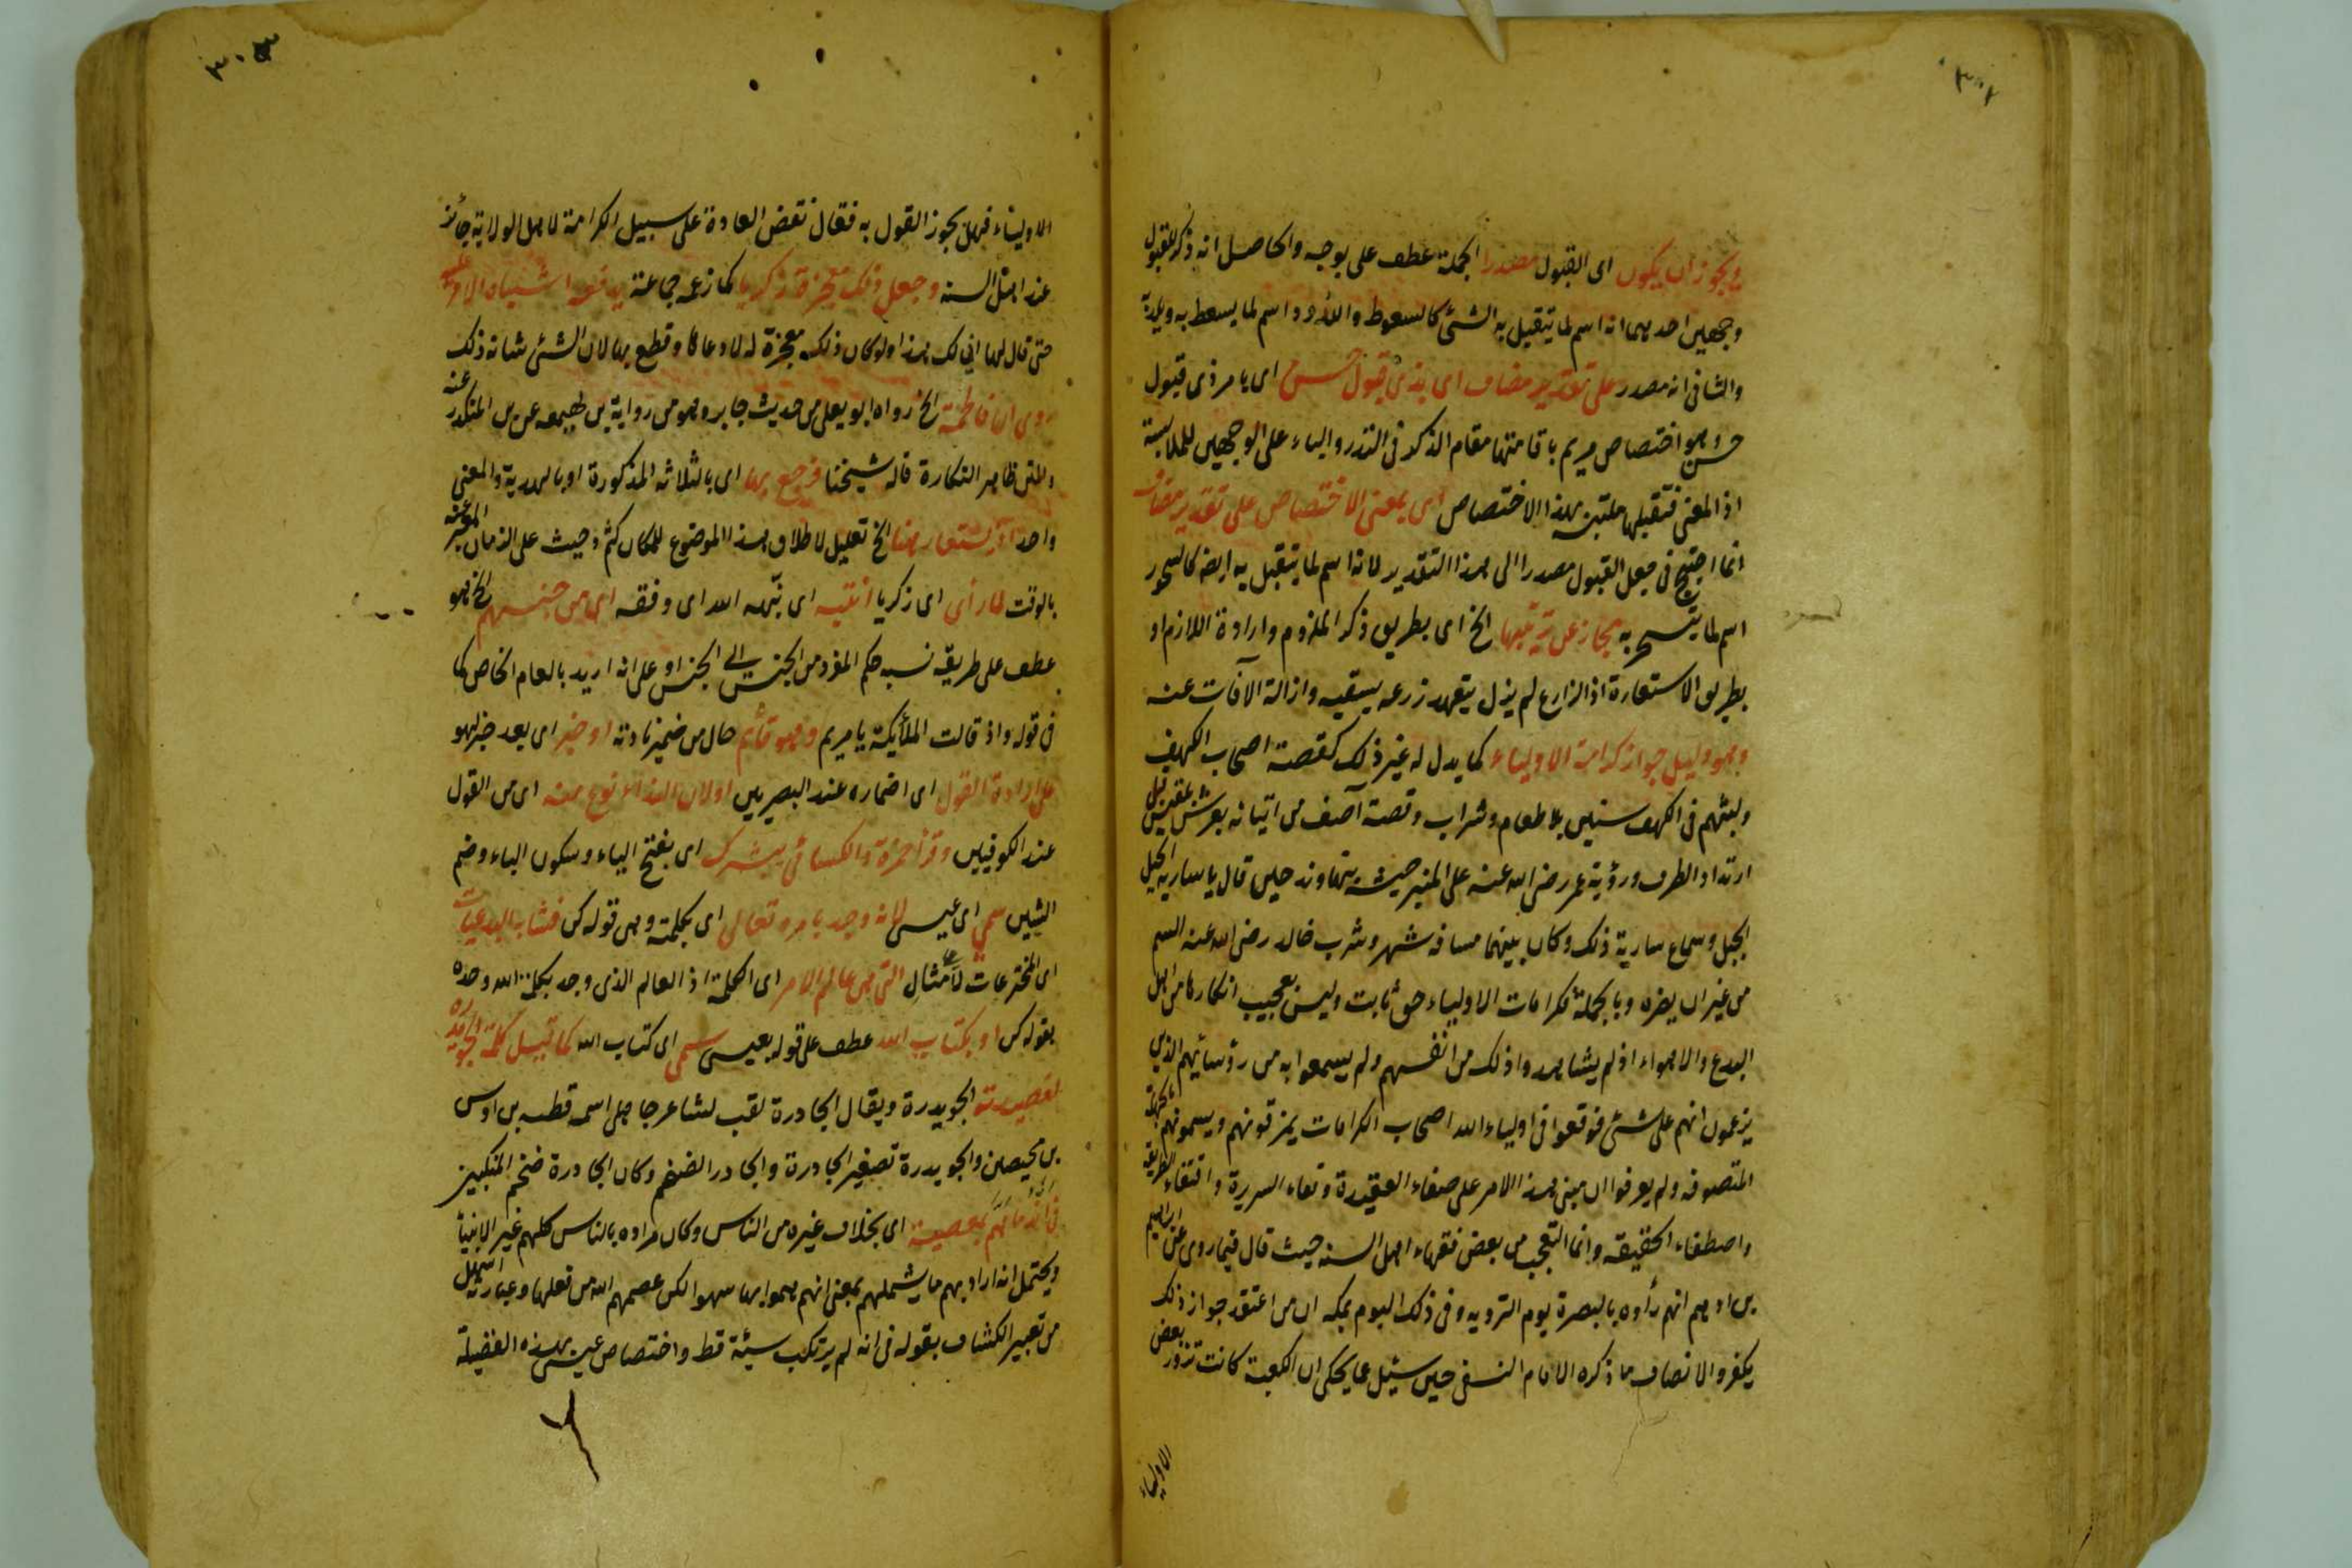 ٣٠٢
ويجوز ان يكون اى القبول مصدرا الجملة عطف على بوجه والحاصل انه ذكر للقبول
وجهين احديهما انه اسم لما يتقبل به الشئ كالسعوط واللدود اسم لما يسعط به ويلد به
والثانى انه مصدر على تقدير مضاف اى بذى قبول حسن اى بامر ذى قبول
حسن وهو اختصاص مريم باقامتها مقام الذكر فى النذر والباء على الوجهين للملابسة
اذ المعنى فتقبلها ملتبسة بهذا الاختصاص اى بمعنى الاختصاص على تقدير مضاف
انما احتيج فى جعل القبول مصدرا الى هذا التقدير لانه اسم لما يتقبل به ايضه كالسحور
اسم لما يتسحر به مجاز عن تربيتها الخ اى بطريق ذكر الملزوم وارادة اللازم او
بطريق الاستعارة اذ الزارع لم يزل يتعهد زرعه بسقيه وازالة الآفات عنه
وهو دليل جواز كرامة الاولياء كما يدل له غير ذلك كقصة اصحاب الكهف
ولبثهم فى الكهف سنين بلا طعام وشراب وقصة آصف من اتيانه بعرش بلقيس قبل
ارتداد الطرف ورؤية عمر رضى الله عنه على المنبر جيشه بنهاوند حين قال يا سارية الجبل
الجبل وسماع سارية ذلك وكان بينهما مسافة شهر وشرب خالد رضى الله عنه السم
من غير ان يضره وبالجملة فكرامات الاولياء حق ثابت وليس بعجيب انكارها من اهل
البدع والاهواء اذ لم يشاهدوا ذلك من انفسهم ولم يسمعوا به من رؤسائهم الذين
يزعمون انهم على شئ فوقعوا فى اولياء الله اصحاب الكرامات يمزقونهم ويسمونهم بالجهلة
المتصوفه ولم يعرفوا ان مبنى هذا الامر على صفاء العقيدة ونقاء السريرة واقتفاء الطريقه
واصطفاء الحقيقه وانما التعجب من بعض فقهاء اهل السنه حيث قال فيما روى عن ابراهيم
بن ادهم انهم رأوه بالبصرة يوم الترويه وفى ذلك اليوم بمكه ان من اعتقد جواز ذلك
يكفر والانصاف ما ذكره الامام النسفى حين سئل عما يحكى ان الكعبة كانت تزور بعض
الاولياء
٣٠٣
الاولياء فهل يجوز القول به فقال نقض العادة على سبيل الكرامة لاهل الولاية جائز
عند اهل السنه وجعل ذلك معجزة زكريا كما زعمه جماعة يدفعه اشتباه الامر عليه
حتى قال لها انى لك هذا ولو كان ذلك معجزة له لادعاها وقطع بها لان الشئ شانه ذلك
روى ان فاطمة الخ رواه ابو يعلى من حديث جابر وهو من رواية بن لهيعه عن بن المنكدر عنه
والمتن ظاهر النكارة قاله شيخنا فرجع بها اى بالثلاثه المذكورة او بالهدية والمعنى
واحد اذ يستعار هنا الخ تعليل لاطلاق هذا الموضوع للمكان كثم وحيث على الزمان المعبر عنه
بالوقت لما رأى اى زكريا انتبه اى نبّهه الله اى وفقه اى من جنسهم الخ فهو
عطف على طريقه نسبه حكم المفرد من الجنس الى الجنس او على انه اريد بالعام الخاص كما
فى قوله واذ قالت الملائكة يا مريم وهو قائم حال من ضمير نادته او خبر اى بعد خبر لهو
على ارادة القول اى اضماره عند البصريين او لان النداء نوع منه اى من القول
عند الكوفيين وقرأ حمزة والكسائى يبشرك اى بفتح الياء وسكون الباء وضم
الشين سمى اى عيسى لانه وجد بامره تعالى اى بكلمته وهى قوله كن فشابه البدعيات
اى المخترعات لا على مثال التى هى عالم الامر اى الكلمة اذ العالم الذى وجد بكلمة الله وحده
بقوله كن او بكتاب الله عطف على قوله بعيسى سمى اى كتاب الله كما قيل كلمة الحويدره
لقصيدته الحويدرة ويقال الحادرة لقب لشاعر جاهلى اسمه قطبه بن اوس
بن محيصن والحويدرة تصغير الحادرة والحادر الضخم وكان الحادرة ضخم المنكبين
فى انه ما همّ بمعصية اى بخلاف غيره من الناس وكان مراده بالناس كلهم غير الانبيا
ويحتمل انه اراد بهم ما يشملهم بمعنى انهم هموا بها سهوا لكن عصمهم الله من فعلها وعبارته اشمل
من تعبير الكشاف بقوله فى انه لم يرتكب سيئة قط واختصاص عيسى بهذه الفضيلة